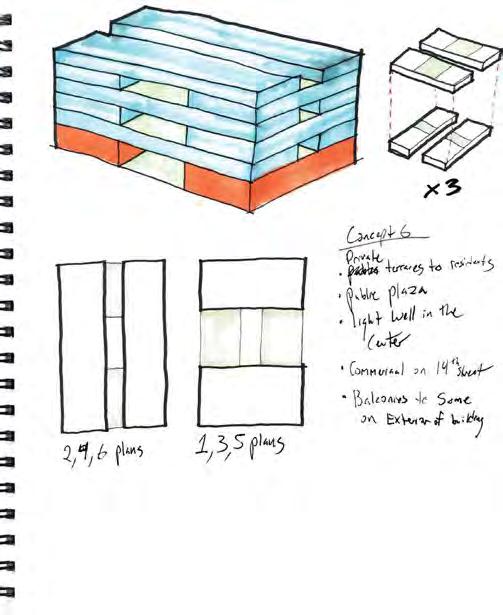 ×3
Concept 6
Private
• terraces to residents
• public plaza
• light well in the
Center
• Commercial on 14th street
• Balconies to Some
on Exterior of building
2,4,6 plans
1,3,5 plans